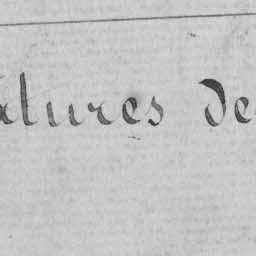 atures de